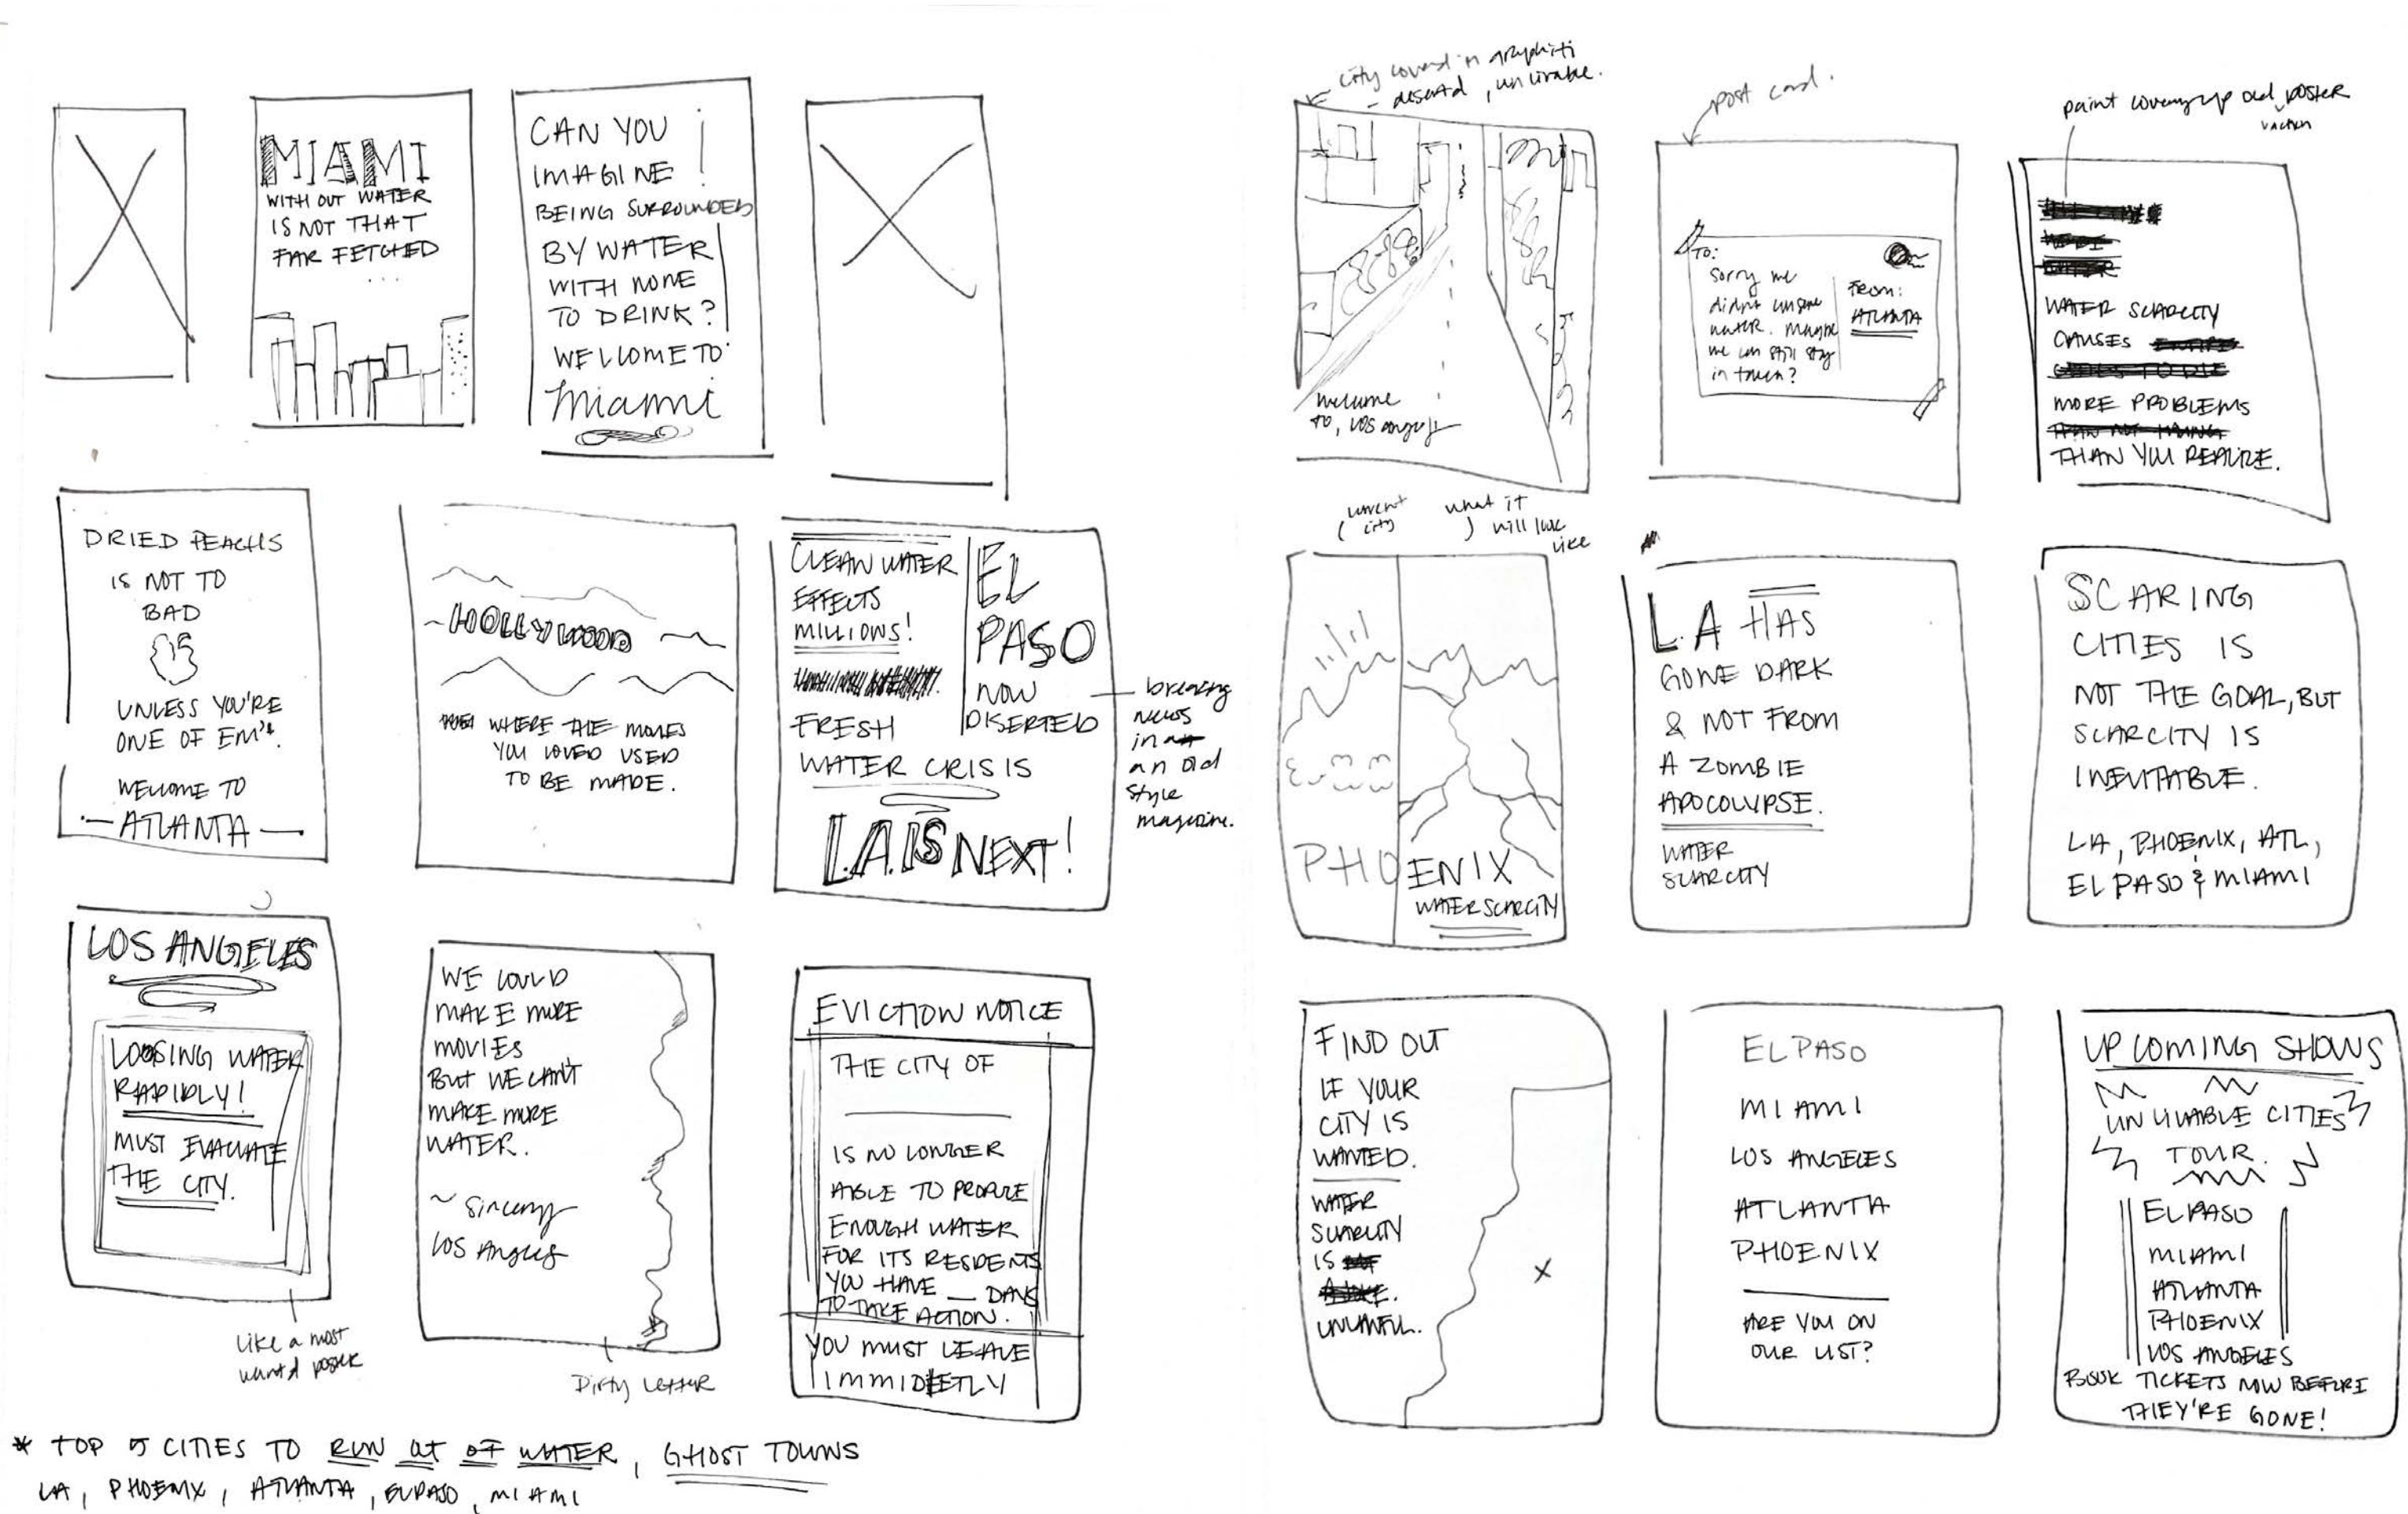 MIAMI
WITH OUT WATER
IS NOT THAT
FAR FETCHED
...
CAN YOU
IMAGINE
BEING SURROUNDED
BY WATER
WITH NONE
TO DRINK?
WELCOME TO
Miami
DRIED PEACHS
IS NOT TO
BAD
UNLESS YOU'RE
ONE OF EM'.
WELCOME TO
— ATLANTA —
HOLLYWOOD
WHERE THE MOVIES
YOU LOVED USED
TO BE MADE.
CLEAN WATER
EFFECTS
MILLIONS!
FRESH
WATER CRISIS
EL
PASO
NOW
DISERTED
L.A. IS NEXT!
breaking
news
in
an old
style
magazine.
LOS ANGELES
LOOSING WATER
RAPIDLY!
MUST EVACUATE
THE CITY.
Like a most
wanted poster
WE COULD
MAKE MORE
MOVIES
BUT WE CAN'T
MAKE MORE
WATER.
~ Sincerly
LOS Angeles
Dirty Letter
EVICTION NOTICE
THE CITY OF
IS NO LONGER
ABLE TO
ENOUGH WATER
FOR ITS RESIDENTS
YOU HAVE __ DAYS
TO TAKE ACTION.
YOU MUST LEAVE
IMMIDEETLY
* TOP 5 CITIES TO RUN OUT OF WATER, GHOST TOWNS
LA, PHOENIX, ATLANTA, EL PASO, MIAMI
city covered in graphiti
- deserted, unlivable.
welcome
to, los angeles
post card.
TO:
Sorry we
didnt conserve
water. Maybe
we can still stay
in town?
From:
ATLANTA
paint covering up old poster
WATER SCARCITY
CAUSES
MORE PROBLEMS
THAN YOU REALIZE.
current
city
what it
will look
like
PHOENIX
WATER SCARCITY
L.A HAS
GONE DARK
& NOT FROM
A ZOMBIE
APOCOLYPSE.
WATER
SCARCITY
SCARING
CITIES IS
NOT THE GOAL, BUT
SCARCITY IS
INEVITABLE.
LA, PHOENIX, ATL,
EL PASO & MIAMI
FIND OUT
IF YOUR
CITY IS
WANTED.
WATER
SCARCITY
IS
UNLAWFUL.
X
EL PASO
MIAMI
LOS ANGELES
ATLANTA
PHOENIX
ARE YOU ON
OUR LIST?
UPCOMING SHOWS
UNLIVABLE CITIES
TOUR.
EL PASO
MIAMI
ATLANTA
PHOENIX
LOS ANGELES
BOOK TICKETS NOW BEFORE
THEY'RE GONE!